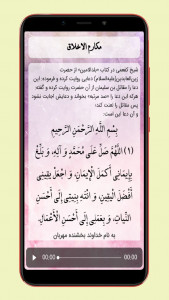 مکارم الاخلاق
شیخ کفعمی در کتاب «بلدالامین» از حضرت
زین‌العابدین(علیه‌السلام) دعایی روایت کرده و فرموده: این
دعا را مقاتل بن سلیمان از آن حضرت روایت کرده و گفته:
هرکه این دعا را «صد مرتبه» بخواند و دعایش اجابت نشود
پس مقاتل را لعنت کند؛
و آن دعا این است:
بِسْمِ اللَّهِ الرَّحْمَنِ الرَّحِيمِ
(۱) اللَّهُمَّ صَلِّ عَلَى مُحَمَّدٍ وَ آلِهِ، وَ بَلِّغْ
بِإِيمَانِي أَكْمَلَ الْإِيمَانِ، وَ اجْعَلْ يَقِينِي
أَفْضَلَ الْيَقِينِ، وَ انْتَهِ بِنِيَّتِي إِلَى أَحْسَنِ
النِّيَّاتِ، وَ بِعَمَلِي إِلَى أَحْسَنِ الْأَعْمَالِ.
به نام خداوند بخشنده مهربان
00:00 00:00